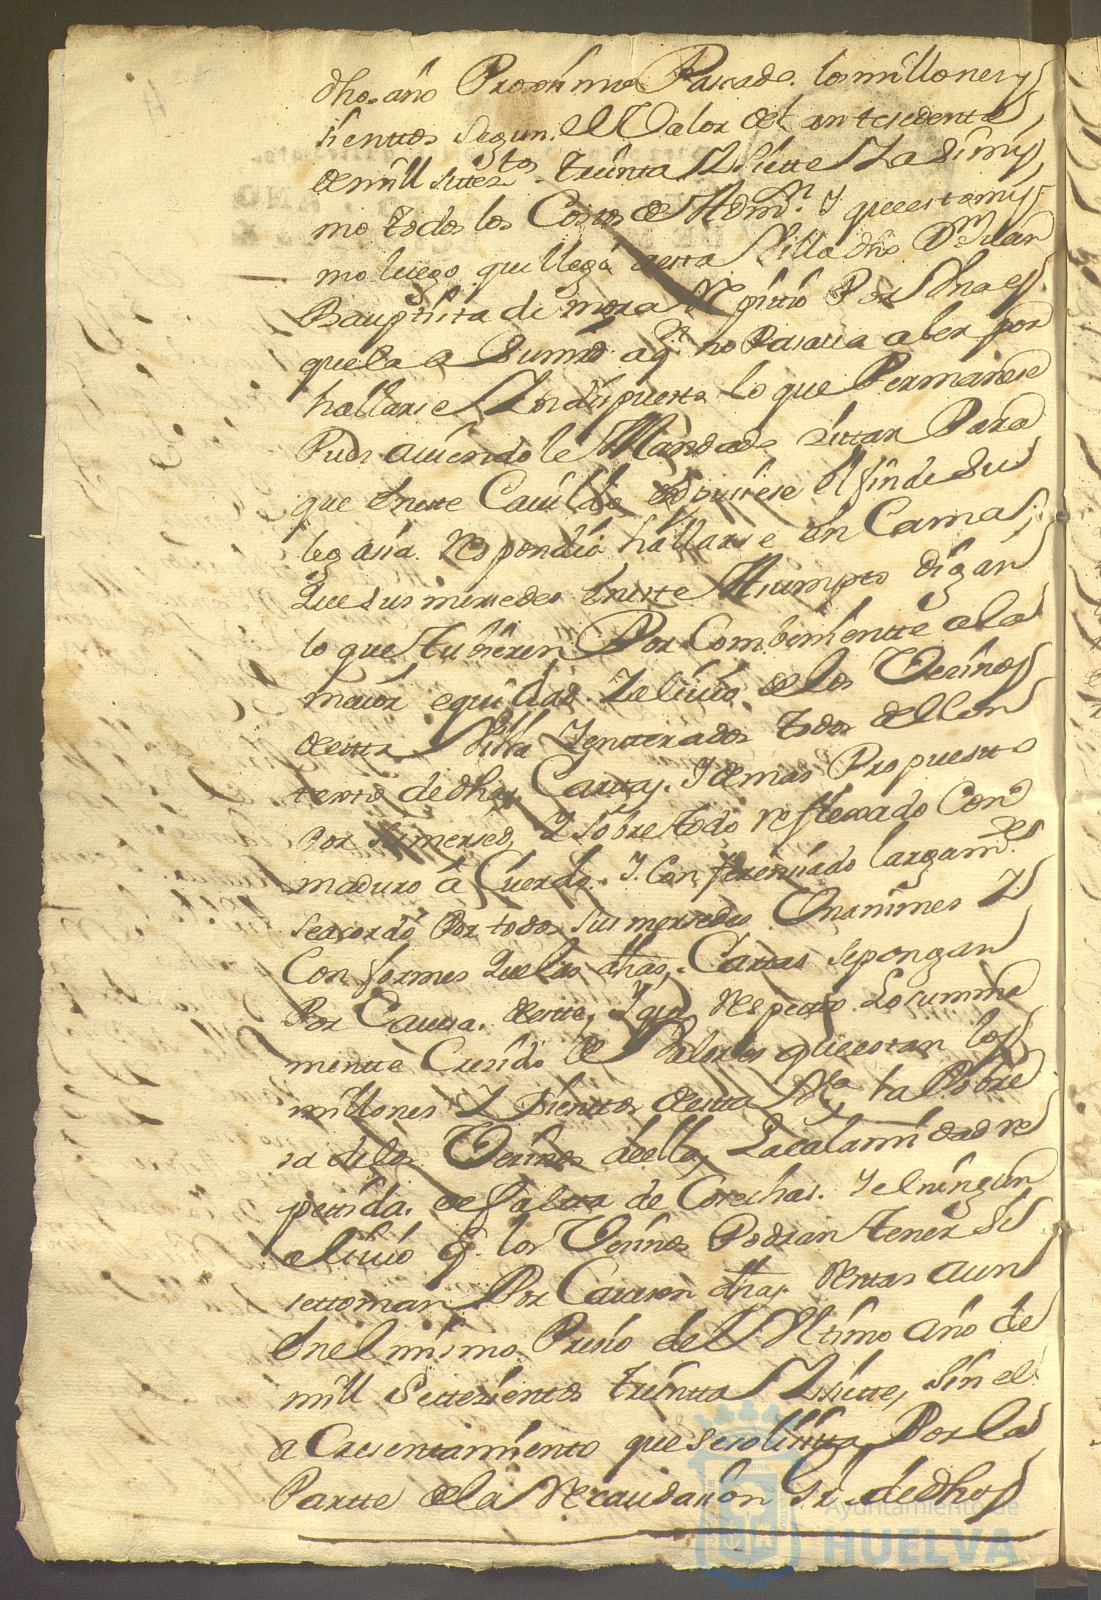 dho año Proximo Passado los millones y
sienttos segun el Valor del antesedente
de mill settesos treinta y siette y asimis
mo todos los Costos de Admon y que estamis
mo luego que llegó a esta Villa dho Dn Juan
Bauptista de mora Repittió Por Una es
quela a Sumrd aqe no Pasaua a ber por
hallarse Yndispuesto lo que Permanese
Pues auiendole Mandado Zittar Para
que en este Cauildo expusiese el fin de su
legasia Respondió hallarse en Cama
Que sus mersedes en este Asumpto digan
lo que tubieren Por Combeniente a la
maior equidad y aliuio de los Vesinos
de esta Villa Y entterados todos del Con
tenido de dhas Cartas Y demas Propuesto
por su mersed, Y sobre todo reflexado Con
maduro áCuerdo Y Conferensiado largamte
se acordó Por todos sus mersedes Unanimes Y
Conformes Que las dhas Cartas se pongan
Por Cauesa de este, Y que Respecto Lo summa
mente Cresido de Valores que estan los
millones Y sienttos de esta Va la Pobre
sa de los Vesinos de ella, La calamidad re
pettida de faltta de Cosechas Y el ningun
aliuio q los Vesinos Podran tener Si
se ttoman Por Caueson dhas Rentas aun
en el mismo Presio del Ultimo año de
mill Settesientos treintta Y siette, sin el
aCresentamiento que se solisitta Por la
Partte de la Recaudasion de dhos
Ayuntamiento de
HUELVA